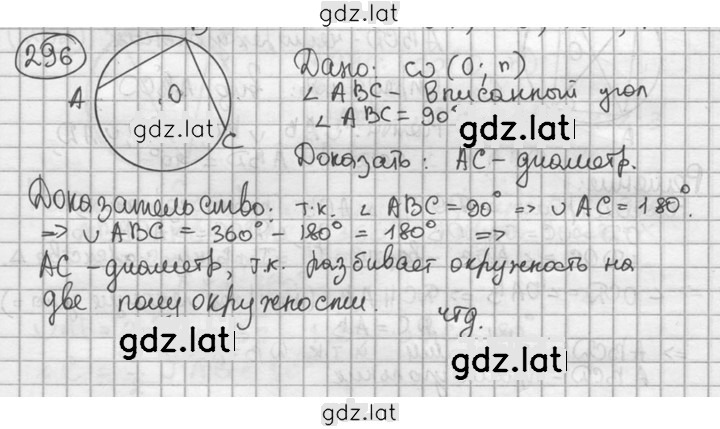 gdz.latl
296
B
A
O
C
Дано: ω (O; r)
∠ ABC - вписанный угол
∠ ABC = 90°
gdz.latl
gdz.latl
Доказать: AC - диаметр.
Доказательство: т.к. ∠ ABC = 90° => ∪ AC = 180°.
=> ∪ ABC = 360° - 180° = 180° =>
AC - диаметр, т.к. разбивает окружность на
две полуокружности.
чтд.
gdz.latl
gdz.latl
gdz.latl